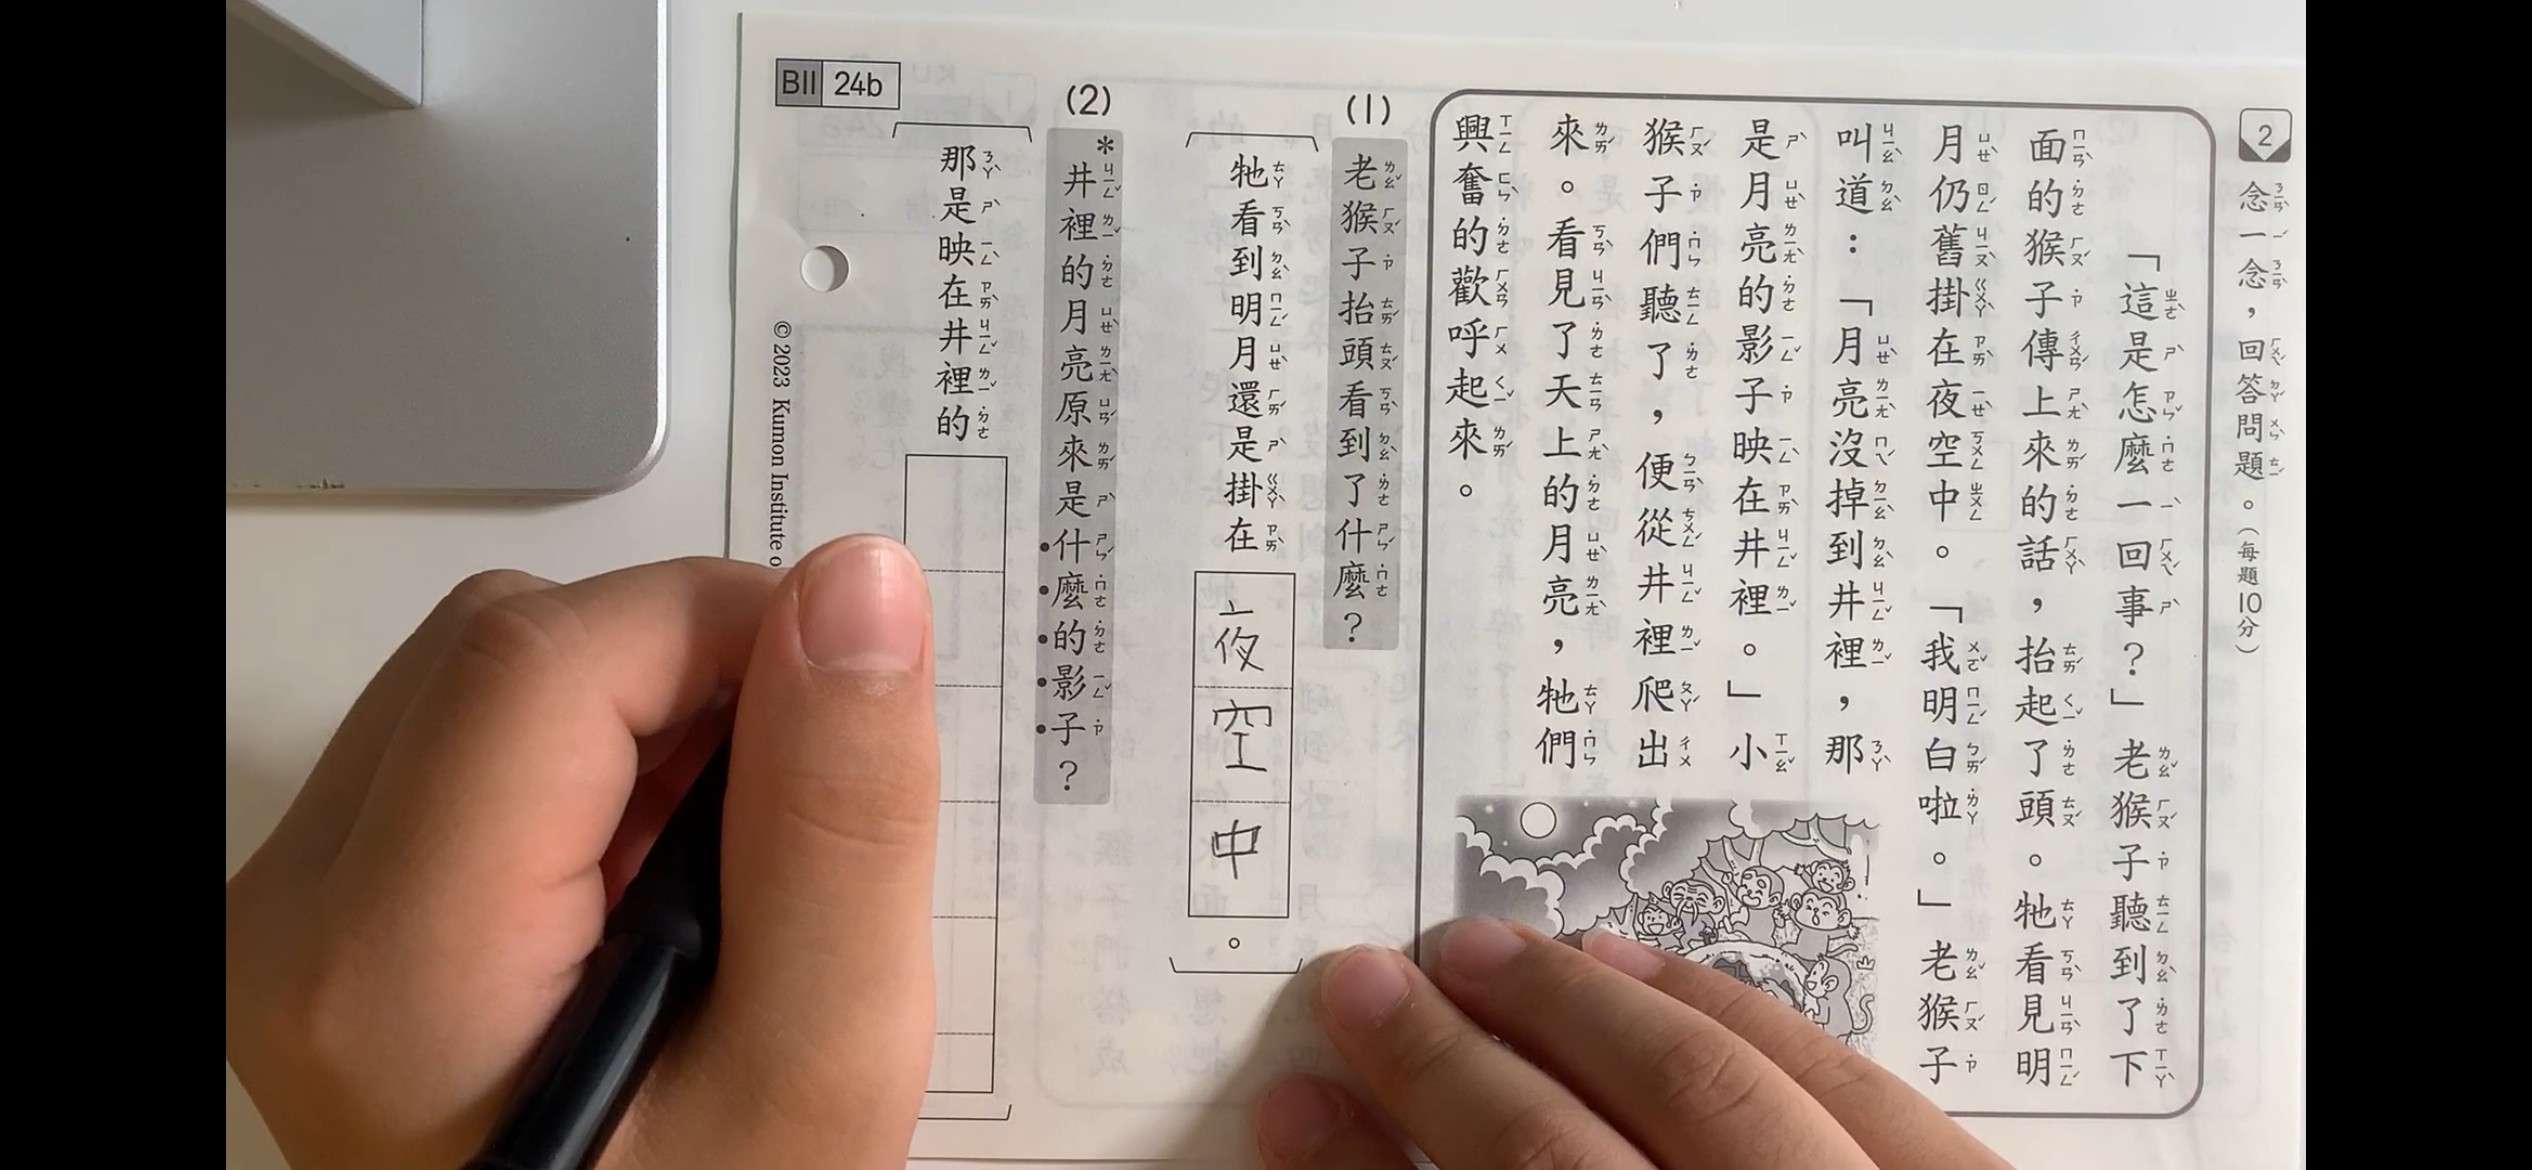 2 念一念，回答問題。（每題10分）
「這是怎麼一回事？」老猴子聽到了下
面的猴子傳上來的話，抬起了頭。牠看見明
月仍舊掛在夜空中。「我明白啦。」老猴子
叫道：「月亮沒掉到井裡，那
是月亮的影子映在井裡。」小
猴子們聽了，便從井裡爬出
來。看見了天上的月亮，牠們
興奮的歡呼起來。
(1) 老猴子抬頭看到了什麼？
牠看到明月還是掛在夜空中。
(2) *井裡的月亮原來是什麼的影子？
那是映在井裡的
BII 24b
© 2023 Kumon Institute o